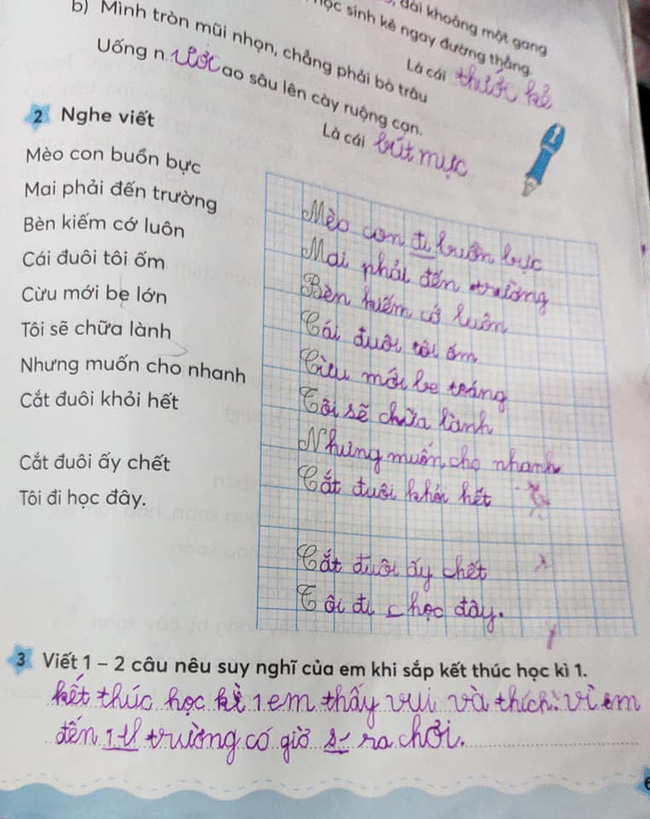 dài khoảng một gang
học sinh kẻ ngay đường thẳng.
Là cái thước kẻ
b) Mình tròn mũi nhọn, chẳng phải bò trâu
Uống nước ao sâu lên cày ruộng cạn.
Là cái bút mực
2 Nghe viết
Mèo con buồn bực
Mai phải đến trường
Bèn kiếm cớ luôn
Cái đuôi tôi ốm
Cừu mới be lớn
Tôi sẽ chữa lành
Nhưng muốn cho nhanh
Cắt đuôi khỏi hết
Cắt đuôi ấy chết
Tôi đi học đây.
Mèo con đi buồn bực
Mai phải đến trường
Bèn kiếm cớ luôn
Cái đuôi tôi ốm
Cừu mới be toáng
Tôi sẽ chữa lành
Nhưng muốn cho nhanh
Cắt đuôi khỏi hết
Cắt đuôi ấy chết
Tôi đi học đây.
3 Viết 1 – 2 câu nêu suy nghĩ của em khi sắp kết thúc học kì 1.
kết thúc học kì 1 em thấy vui và thích: vì em
đến trường có giờ ra chơi.